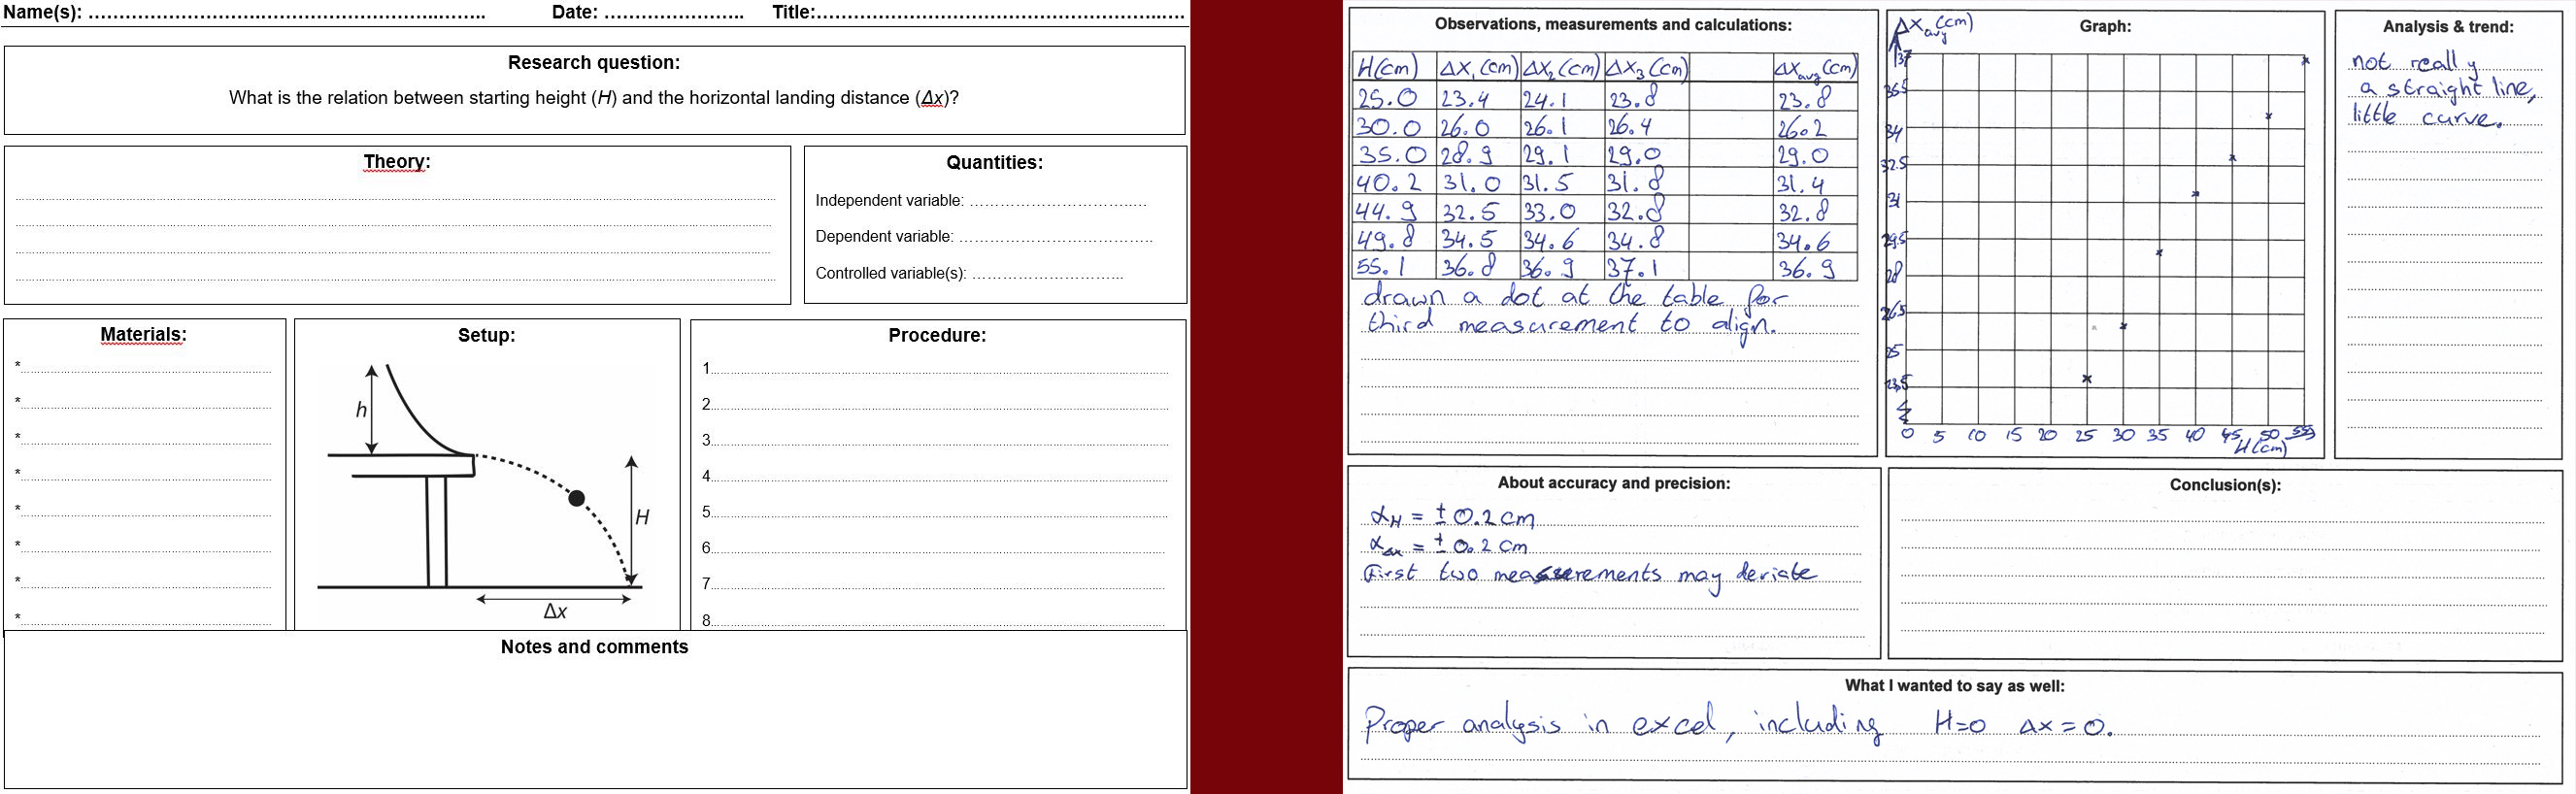 Name(s): ………………………………………………………….…….. Date: ………………….. Title:…………………………………………………….…..
Research question:
What is the relation between starting height (H) and the horizontal landing distance (Δx)?
Theory:
Quantities:
Independent variable: ………………………………
Dependent variable: …………………………………
Controlled variable(s): ………………………….
Materials:
*
*
*
*
*
*
*
*
Setup:
h
H
Δx
Procedure:
1
2
3
4
5
6
7
8
Notes and comments
Observations, measurements and calculations:
H(cm) Δx₁(cm) Δx₂(cm) Δx₃(cm) Δxavg(cm)
25.0 23.4 24.1 23.8 23.8
30.0 26.0 26.1 26.4 26.2
35.0 28.9 29.1 29.0 29.0
40.2 31.0 31.5 31.8 31.4
44.9 32.5 33.0 32.8 32.8
49.8 34.5 34.6 34.8 34.6
55.1 36.8 36.9 37.1 36.9
drawn a dot at the table for
third measurement to align.
Graph:
Δxavg(cm)
37
35.5
34
32.5
31
29.5
28
26.5
25
23.5
0 5 10 15 20 25 30 35 40 45 50 55
H(cm)
Analysis & trend:
not really
a straight line,
little curve.
About accuracy and precision:
αH = ± 0.2 cm
αΔx = ± 0.2 cm
First two measurements may deviate
Conclusion(s):
What I wanted to say as well:
Proper analysis in excel, including H=0 Δx=0.